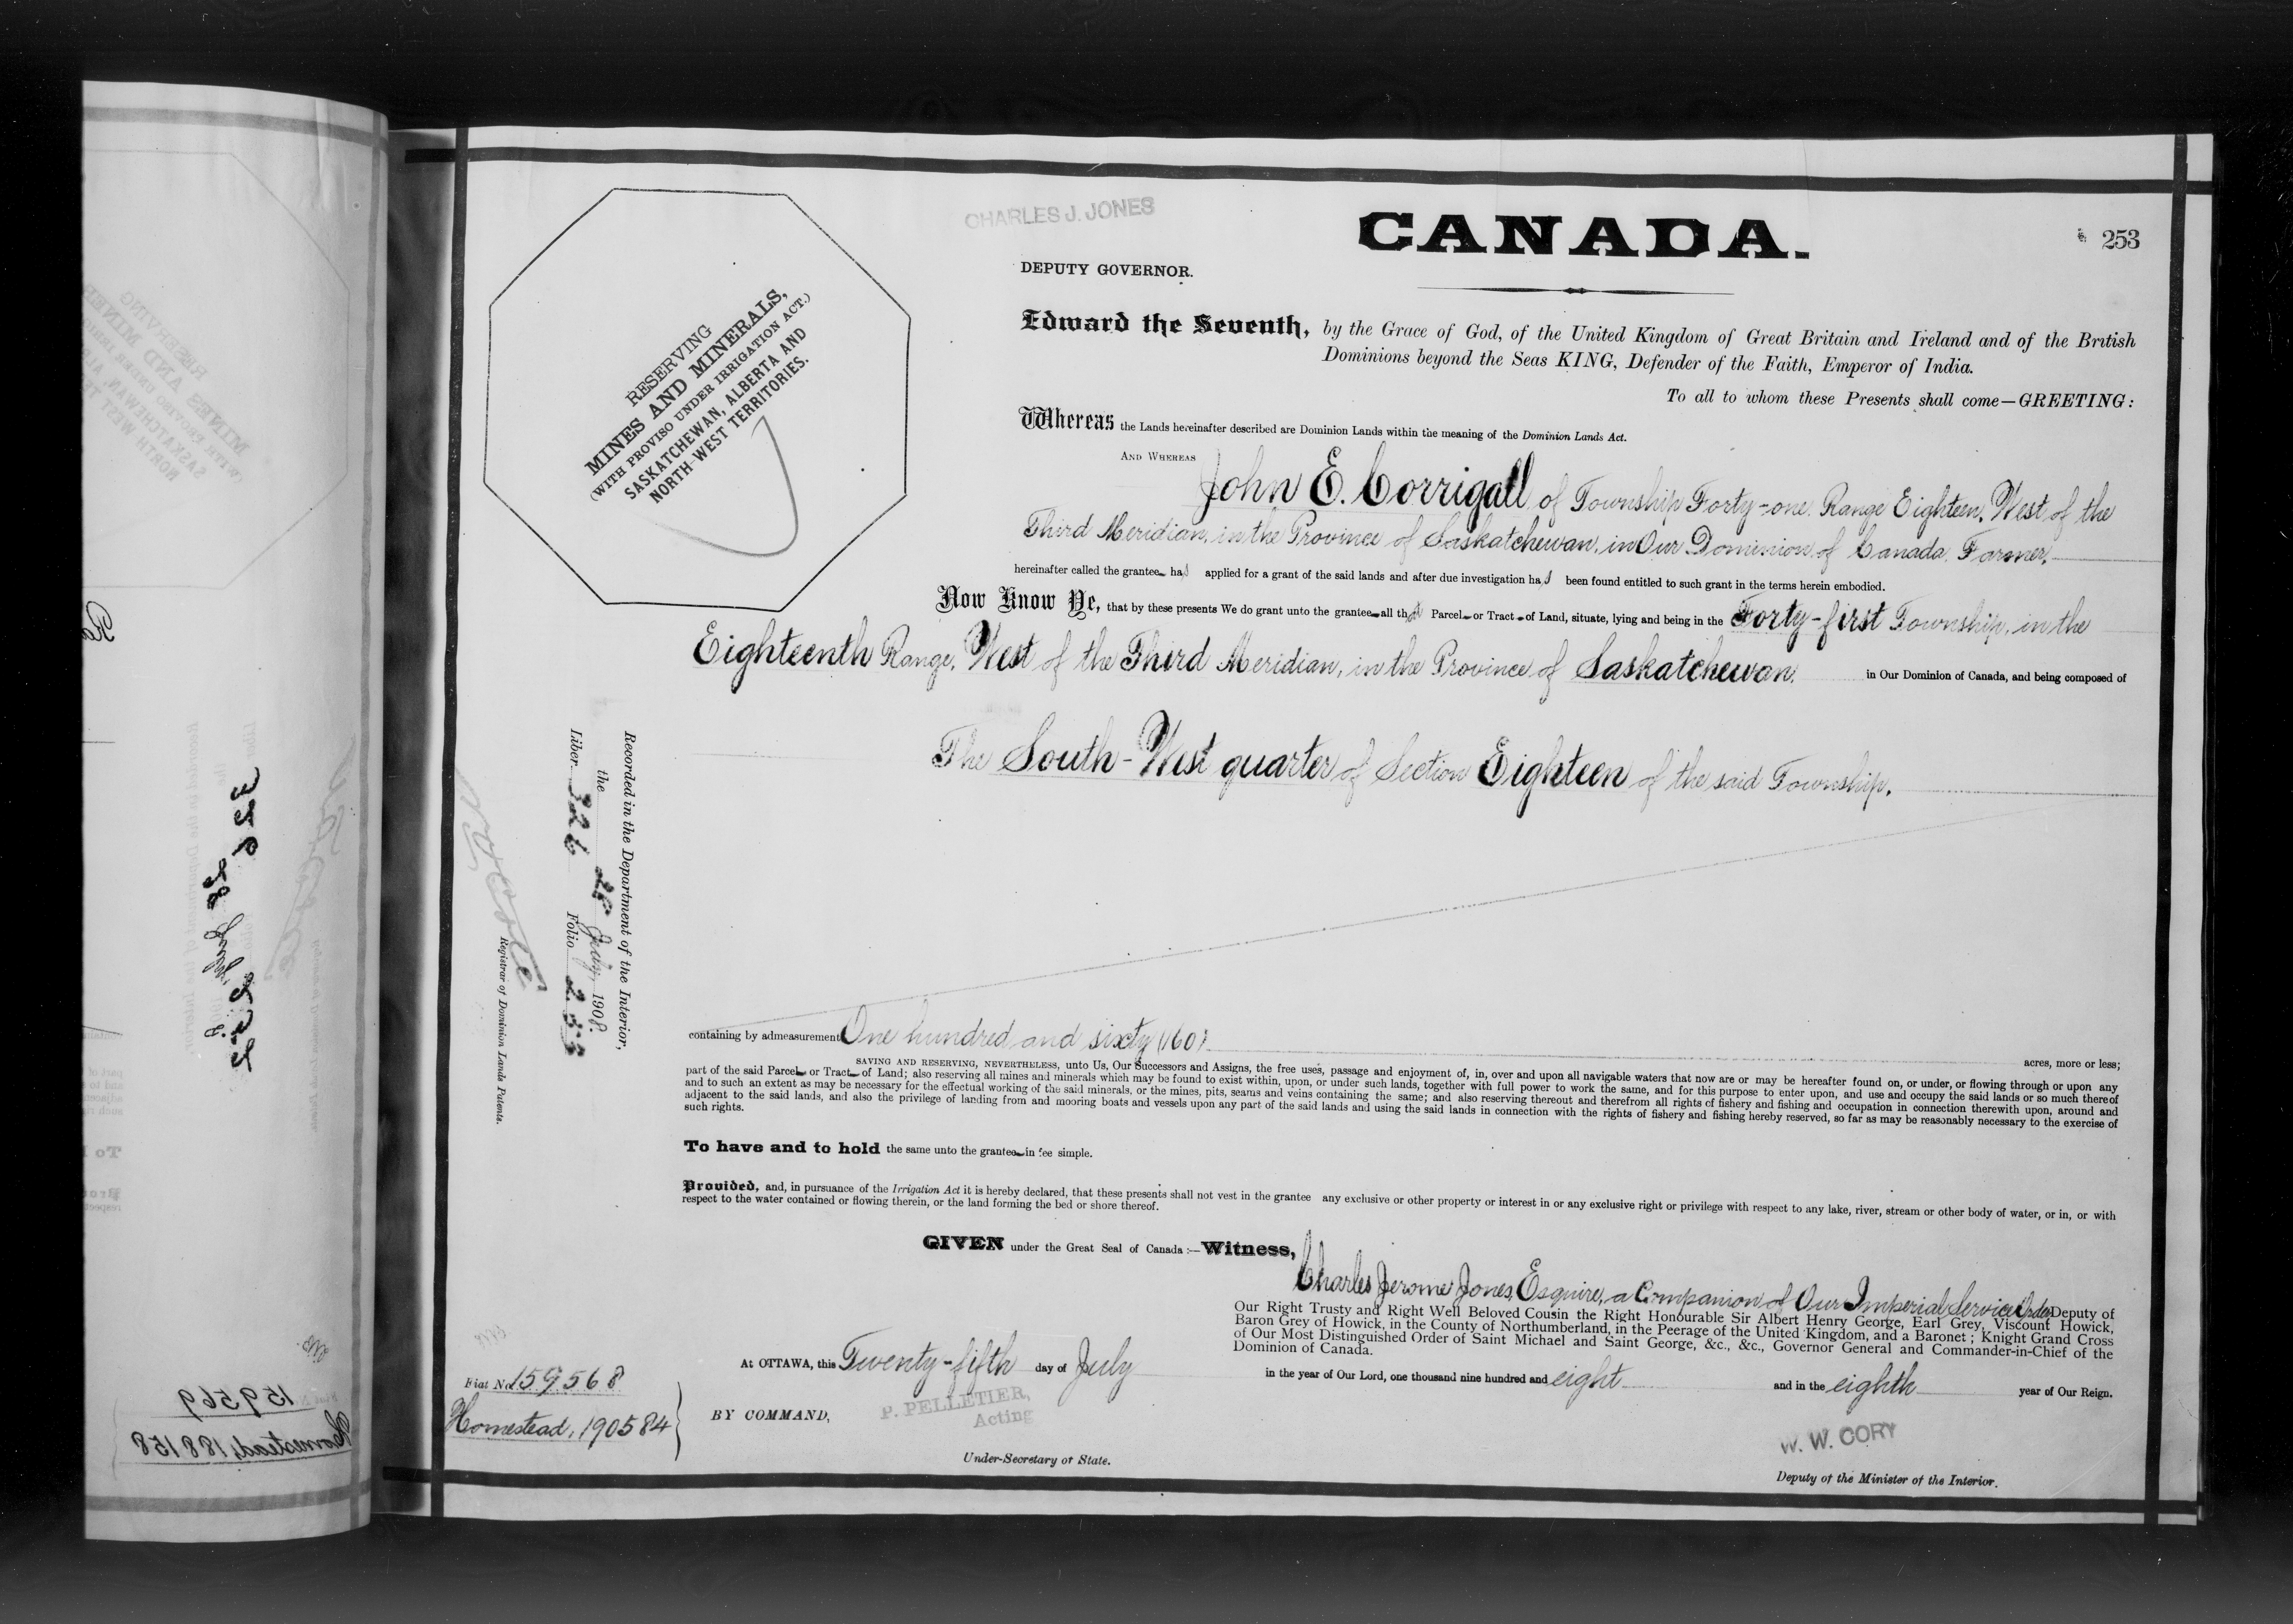 CHARLES J. JONES
CANADA.
253
DEPUTY GOVERNOR.
RESERVING
MINES AND MINERALS,
(WITH PROVISO UNDER IRRIGATION ACT.)
SASKATCHEWAN, ALBERTA AND
NORTH-WEST TERRITORIES.
Edward the Seventh, by the Grace of God, of the United Kingdom of Great Britain and Ireland and of the British
Dominions beyond the Seas KING, Defender of the Faith, Emperor of India.
To all to whom these Presents shall come—GREETING:
Whereas the Lands hereinafter described are Dominion Lands within the meaning of the Dominion Lands Act.
AND WHEREAS John E. Corrigall of Township Forty-one, Range Eighteen, West of the
Third Meridian, in the Province of Saskatchewan, in Our Dominion of Canada, Farmer,
hereinafter called the grantee has applied for a grant of the said lands and after due investigation has been found entitled to such grant in the terms herein embodied.
Now Know Ye, that by these presents We do grant unto the grantee all that Parcel or Tract of Land, situate, lying and being in the Forty-first Township, in the
Eighteenth Range, West of the Third Meridian, in the Province of Saskatchewan, in Our Dominion of Canada, and being composed of
The South-West quarter of Section Eighteen of the said Township.
Recorded in the Department of the Interior,
the 28 July 1908.
Liber 326 Folio 253
Registrar of Dominion Lands Patents.
containing by admeasurement One hundred and sixty (160) acres, more or less;
SAVING AND RESERVING, NEVERTHELESS, unto Us, Our Successors and Assigns, the free uses, passage and enjoyment of, in, over and upon all navigable waters that now are or may be hereafter found on, or under, or flowing through or upon any
part of the said Parcel or Tract of Land; also reserving all mines and minerals which may be found to exist within, upon, or under such lands, together with full power to work the same, and for this purpose to enter upon, and use and occupy the said lands or so much thereof
and to such an extent as may be necessary for the effectual working of the said minerals, or the mines, pits, seams and veins containing the same; and also reserving thereout and therefrom all rights of fishery and fishing and occupation in connection therewith upon, around and
adjacent to the said lands, and also the privilege of landing from and mooring boats and vessels upon any part of the said lands and using the said lands in connection with the rights of fishery and fishing hereby reserved, so far as may be reasonably necessary to the exercise of
such rights.
To have and to hold the same unto the grantee in fee simple.
Provided, and, in pursuance of the Irrigation Act it is hereby declared, that these presents shall not vest in the grantee any exclusive or other property or interest in or any exclusive right or privilege with respect to any lake, river, stream or other body of water, or in, or with
respect to the water contained or flowing therein, or the land forming the bed or shore thereof.
GIVEN under the Great Seal of Canada:—Witness, Charles Jerome Jones, Esquire, a Companion of Our Imperial Service Order, Deputy of
Our Right Trusty and Right Well Beloved Cousin the Right Honourable Sir Albert Henry George, Earl Grey, Viscount Howick,
Baron Grey of Howick, in the County of Northumberland, in the Peerage of the United Kingdom, and a Baronet; Knight Grand Cross
of Our Most Distinguished Order of Saint Michael and Saint George, &c., &c., Governor General and Commander-in-Chief of the
Dominion of Canada.
At OTTAWA, this Twenty-fifth day of July in the year of Our Lord, one thousand nine hundred and eight and in the eighth year of Our Reign.
Fiat No. 159568
Homestead, 190584
BY COMMAND,
P. PELLETIER,
Acting
Under-Secretary of State.
W. W. CORY
Deputy of the Minister of the Interior.
159569
Homestead, 188158